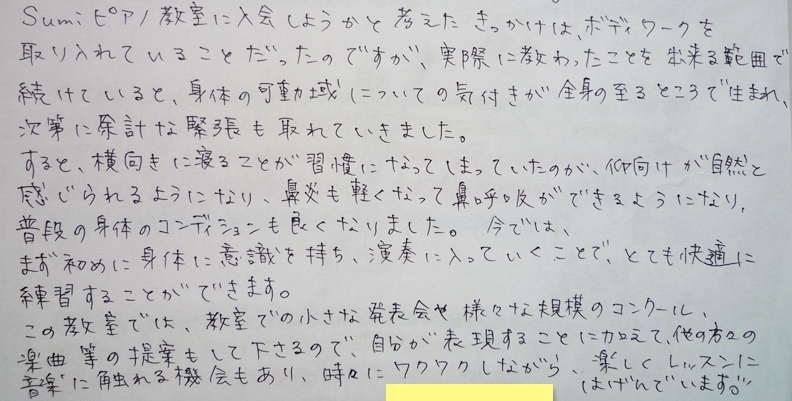 Sumiピアノ教室に入会しようかと考えたきっかけは、ボディワークを
取り入れていることだったのですが、実際に教わったことを出来る範囲で
続けていると、身体の可動域についての気付きが全身の至るところで生まれ、
次第に余計な緊張も取れていきました。
すると、横向きに寝ることが習慣になってしまっていたのが、仰向けが自然と
感じられるようになり、鼻炎も軽くなって鼻呼吸ができるようになり、
普段の身体のコンディションも良くなりました。今では、
まず初めに身体に意識を持ち、演奏に入っていくことで、とても快適に
練習することができます。
この教室では、教室での小さな発表会や様々な規模のコンクール、
楽曲等の提案もして下さるので、自分が表現することに加えて、他の方々の
音楽に触れる機会もあり、時々にワクワクしながら、楽しくレッスンに
はげんでいます。